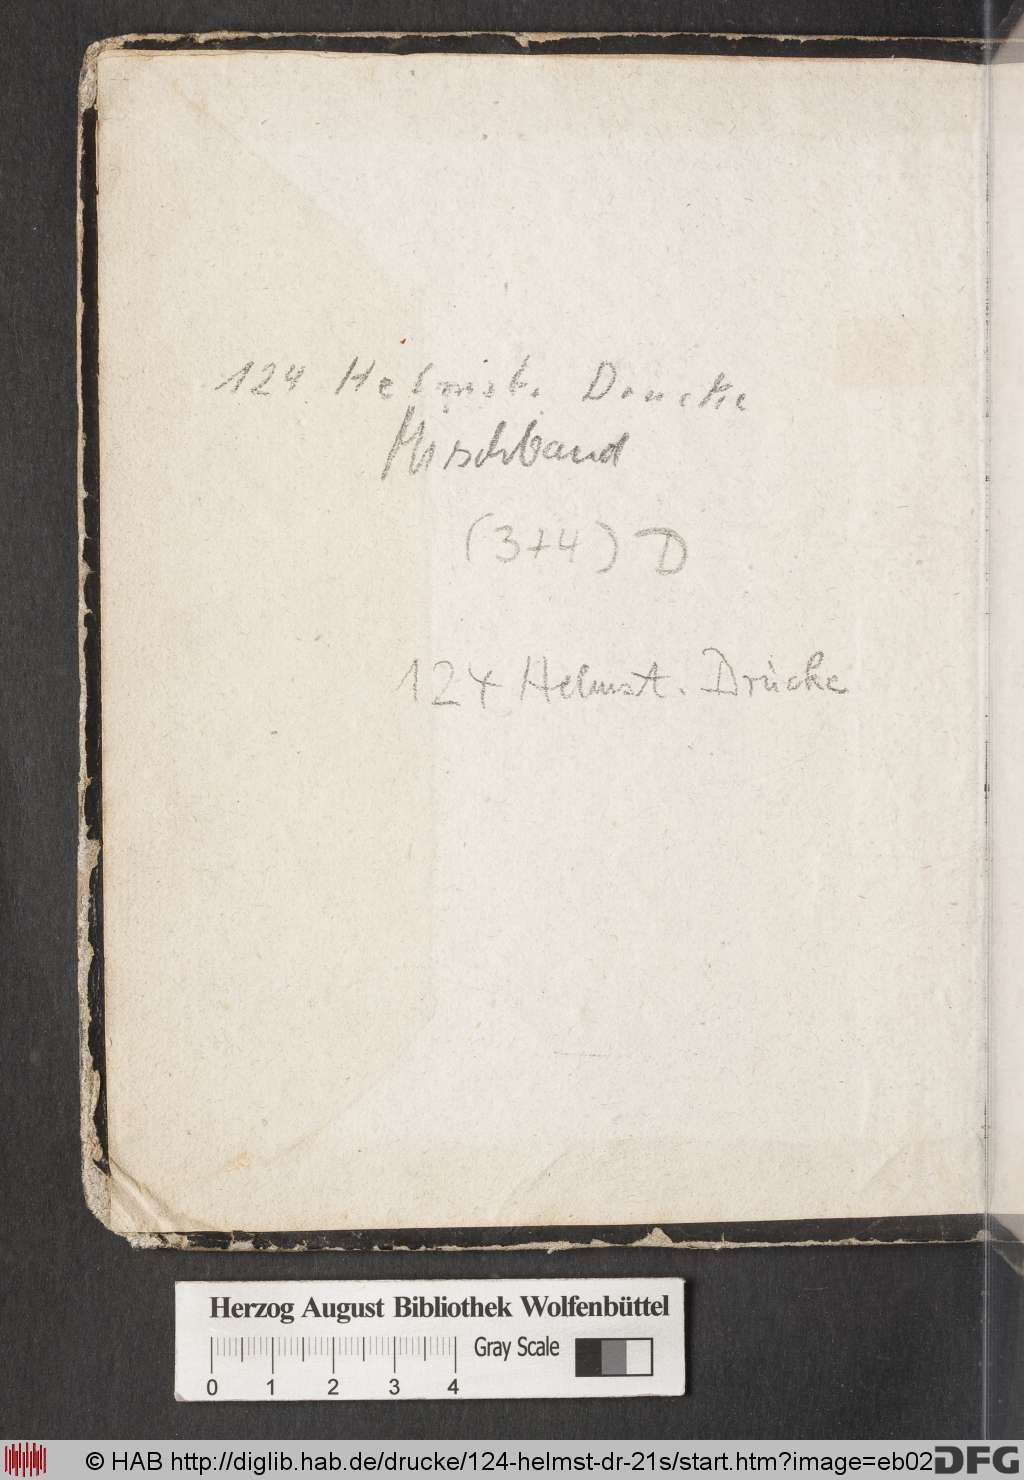 124 Helmst. Drucke
Mischband
(3+4) D
124 Helmst. Drucke
Herzog August Bibliothek Wolfenbüttel
Gray Scale
0 1 2 3 4
© HAB http://diglib.hab.de/drucke/124-helmst-dr-21s/start.htm?image=eb02 DFG